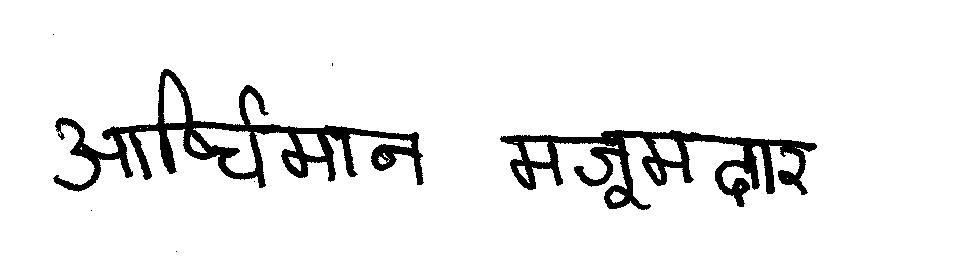 आर्ष्घिमान मजूमदार